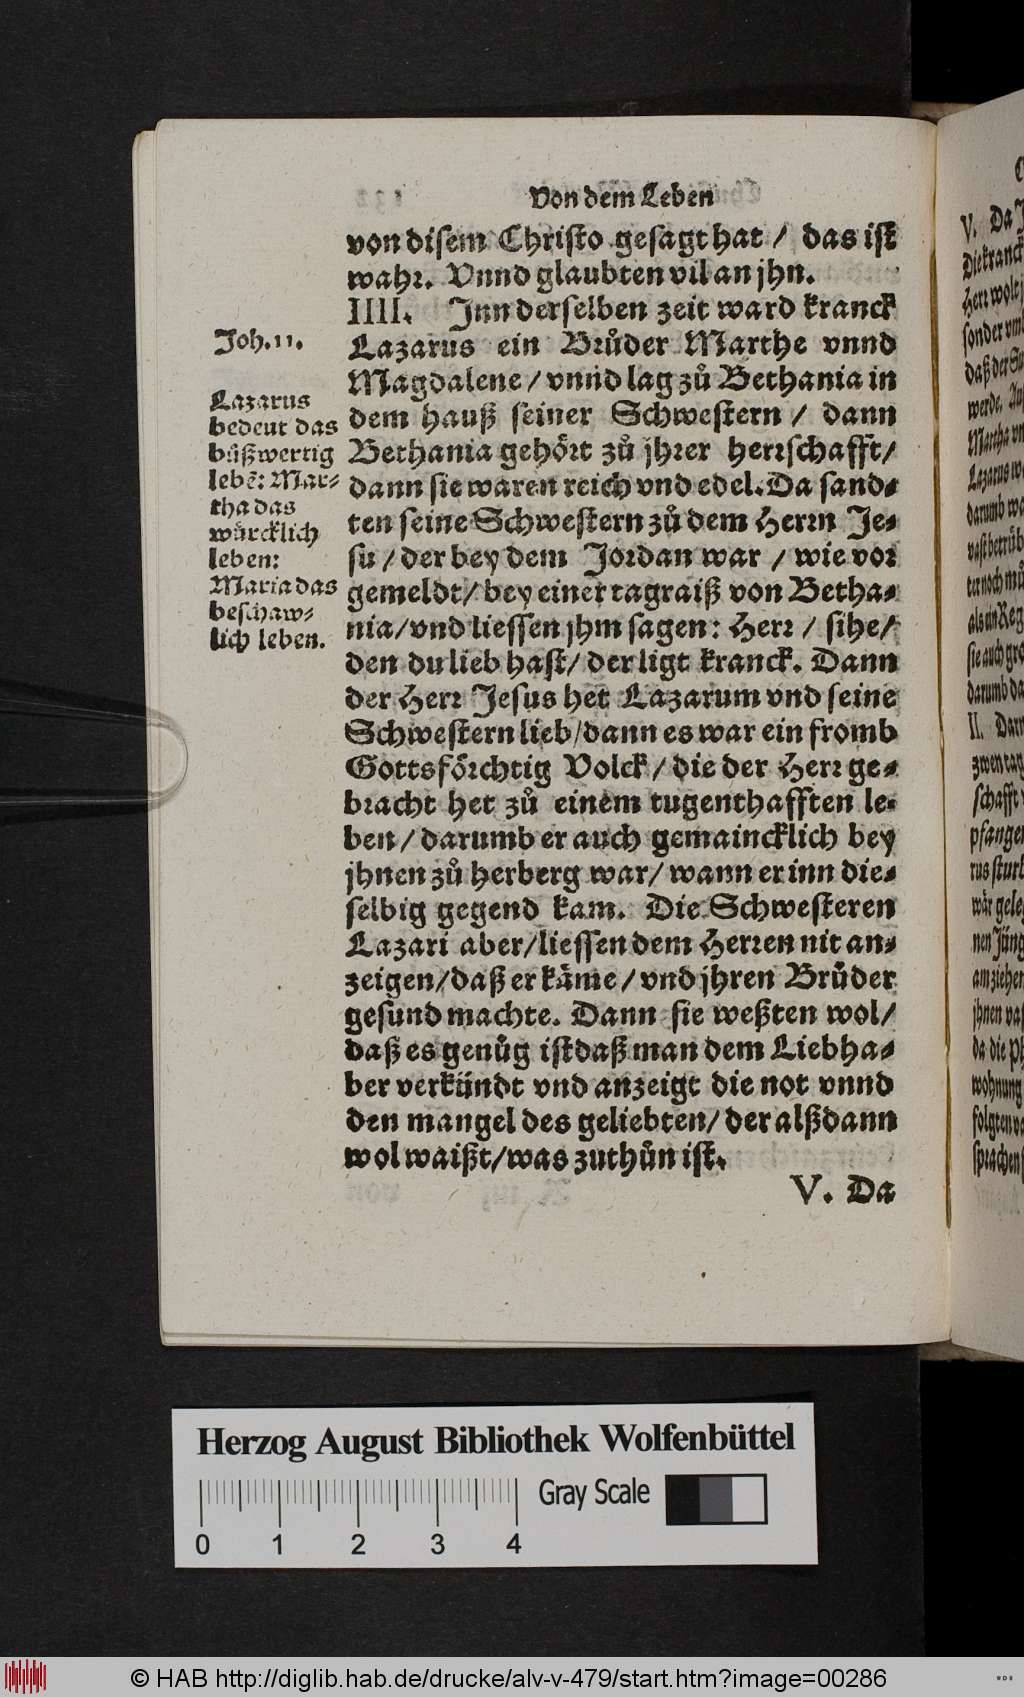 Von dem Leben
von disem Christo gesagt hat / das ist
wahr. Vnnd glaubten vil an jhn.
IIII. Inn derselben zeit ward kranck
Lazarus ein Brůder Marthe vnnd
Magdalene / vnnd lag zů Bethania in
dem hauß seiner Schwestern / dann
Bethania gehört zů jhrer herrschafft /
dann sie waren reich vnd edel. Da sand-
ten seine Schwestern zů dem Herrn Je-
su / der bey dem Jordan war / wie vor
gemeldt / bey einer tagraiß von Betha-
nia / vnd liessen jhm sagen: Herr / sihe /
den du lieb hast / der ligt kranck. Dann
der Herr Jesus het Lazarum vnd seine
Schwestern lieb / dann es war ein fromb
Gottsförchtig Volck / die der Herr ge-
bracht het zů einem tugenthafften le-
ben / darumb er auch gemaincklich bey
jhnen zů herberg war / wann er inn die-
selbig gegend kam. Die Schwesteren
Lazari aber / liessen dem Herren nit an-
zeigen / daß er käme / vnd jhren Brůder
gesund machte. Dann sie weßten wol /
daß es genůg ist daß man dem Liebha-
ber verkündt vnd anzeigt die not vnnd
den mangel des geliebten / der alßdann
wol waißt / was zuthůn ist.
V. Da
Joh. 11.
Lazarus
bedeut das
bůßwertig
lebẽ: Mar-
tha das
würcklich
leben:
Maria das
beschaw-
lich leben.
V. Da
Die kranck
Herr wolt
sonder vm
daß der
werde.
Martha
Lazarus
darumb
ter noch
als ein Reg
sie auch gro
darumb da
II.
zwen tag
schafft
pfangen
rus
wär geleg
nen Jüng
am ziehen
jhnen
da die Ph
wohnung
folgten
sprachen
Herzog August Bibliothek Wolfenbüttel
Gray Scale
0 1 2 3 4
© HAB http://diglib.hab.de/drucke/alv-v-479/start.htm?image=00286